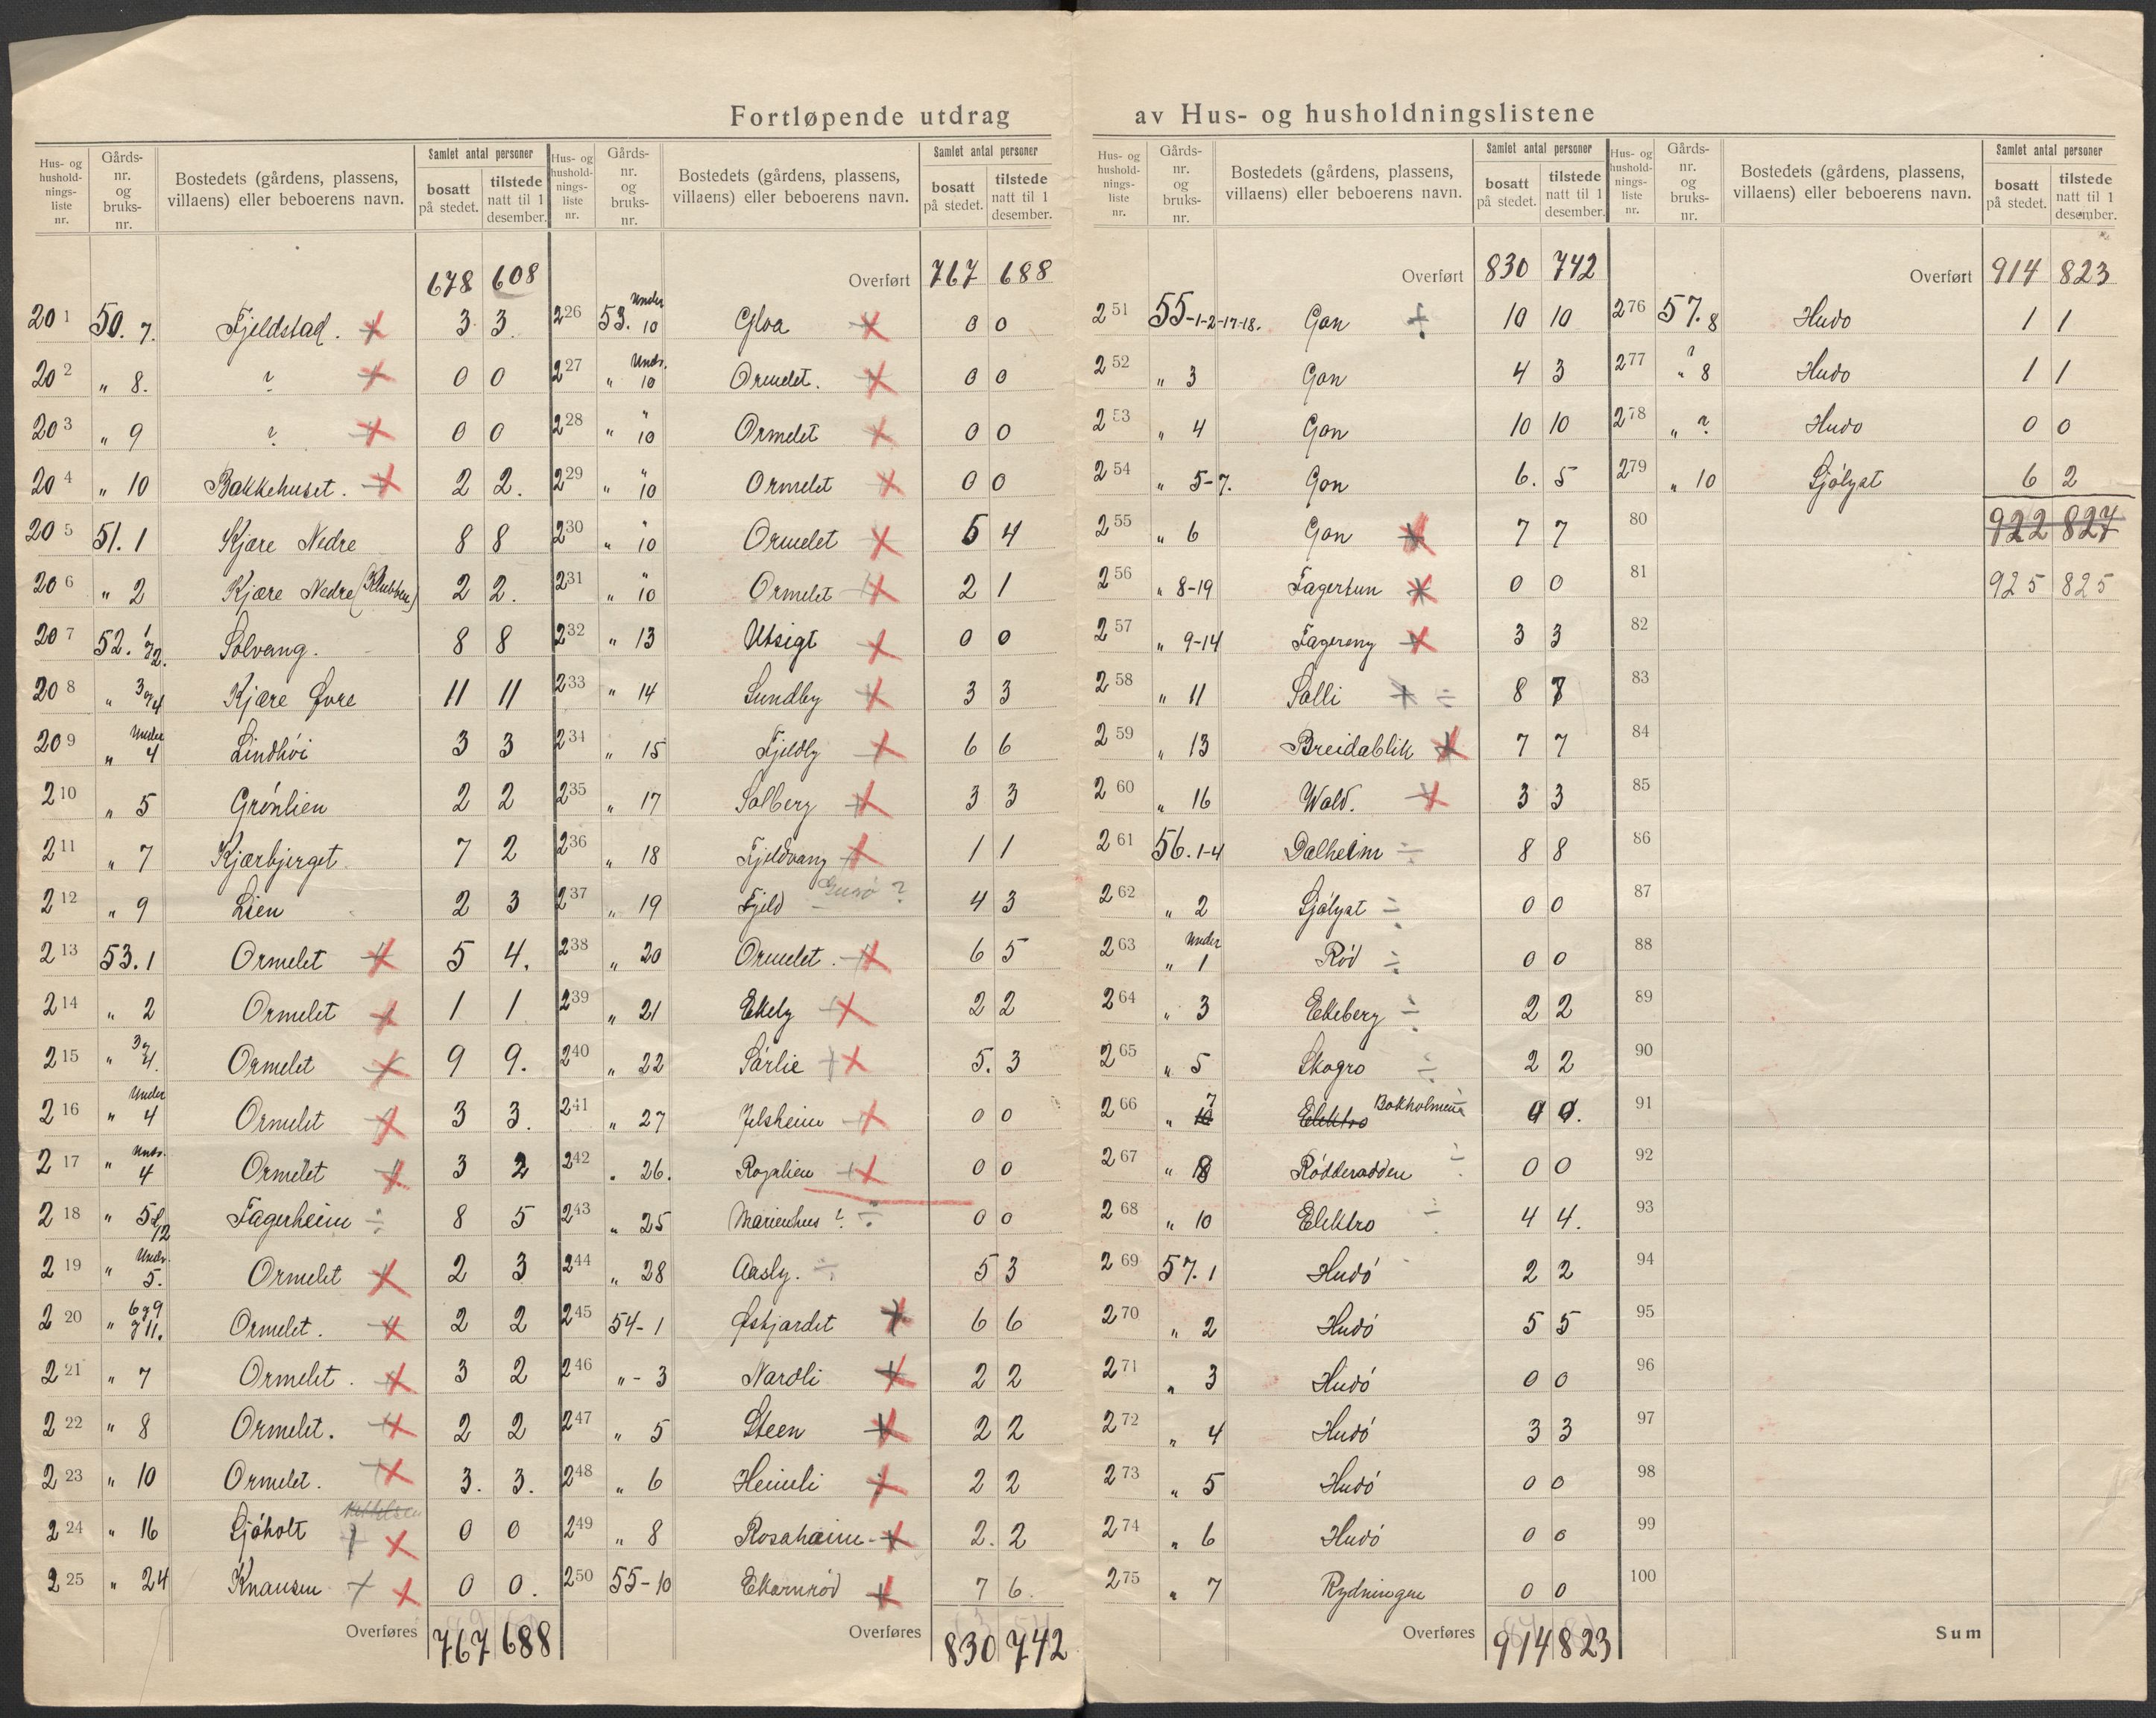 Fortløpende utdrag av Hus- og husholdningslistene
Hus- og hushold-nings-liste nr. Gårds-nr. og bruks-nr. Bostedets (gårdens, plassens, villaens) eller beboerens navn. Samlet antal personer bosatt på stedet. tilstede natt til 1 desember.
678 608
201 50. 7. Fjeldstad. 3 3
202 " 8. ? 0 0
203 " 9 ? 0 0
204 " 10 Bakkehuset. 2 2.
205 51. 1 Kjære Nedre 8 8
206 " 2 Kjære Nedre (Klubben) 2 2.
207 52. 1 g 2. Solvang. 8 8
208 " 3 og 4 Kjære Øvre 11 11
209 " Under 4 Lindhöi 3 3
210 " 5 Grönlien 2 2
211 " 7 Kjærbjerget. 7 2
212 " 9 Lien 2 3
213 53. 1 Ormelet 5 4.
214 " 2 Ormelet 1 1
215 " 3 g 4. Ormelet 9 9.
216 " Under 4 Ormelet 3 3.
217 " Und. 4 Ormelet 3 2
218 " 5 12 Fagerheim ÷ 8 5
219 " Und. 5. Ormelet 2 3
220 " 6 g 9 g 11. Ormelet. 2 2
221 " 7 Ormelet. 3 2
222 " 8 Ormelet. 2 2
223 " 10 Ormelet. 3. 3.
224 " 16 Sjöholt 0 0
225 " 24 Knausen 0 0.
Overføres 767 688
Hus- og hushold-nings-liste nr. Gårds-nr. og bruks-nr. Bostedets (gårdens, plassens, villaens) eller beboerens navn. Samlet antal personer bosatt på stedet. tilstede natt til 1 desember.
Overført 767 688
226 53. Under 10 Gloa 0 0
227 " Und. 10 Ormelet. 0 0
228 " " 10 Ormelet 0 0
229 " " 10 Ormelet 0 0
230 " " 10 Ormelet 5 4
231 " " 10 Ormelet 2 1
232 " 13 Utsigt 0 0
233 " 14 Sundby 3 3
234 " 15 Fjeldly 6 6
235 " 17 Solberg 3 3
236 " 18 Fjeldvang 1 1
237 " 19 Fjeld ? 4 3
238 " 20 Ormelet. 6 5
239 " 21 Ekely 2 2
240 " 22 Sörlie 5. 3
241 " 27 Jelsheim 0 0
242 " 26. Rognlien 0 0
243 " 25 Marienhus ? ÷ 0 0
244 " 28 Aasly. ÷ 5 3
245 54-1 Østjordet 6 6
246 "-3 Nardli 2 2
247 " 5 Steen 2 2
248 " 6 Heimli 2 2
249 " 8 Rosaheim 2. 2
250 55-10 Ekornrød 7 6.
Overføres 830 742
Hus- og hushold-nings-liste nr. Gårds-nr. og bruks-nr. Bostedets (gårdens, plassens, villaens) eller beboerens navn. Samlet antal personer bosatt på stedet. tilstede natt til 1 desember.
Overført 830 742
251 55-1-2-17-18. Gon 10 10
252 " 3 Gon 4 3
253 " 4 Gon 10 10
254 " 5-7. Gon 6. 5
255 " 6 Gon 7 7
256 " 8-19 Fagertun 0 0
257 " 9-14 Fagereng 3 3
258 " 11 Solli ÷ 8 7
259 " 13 Breidablik 7 7
260 " 16 Wold. 3 3
261 56. 1-4 Dalheim ÷ 8 8
262 " 2 Sjölyst ÷ 0 0
263 " Under 1 Rød ÷ 0 0
264 " 3 Ekeberg ÷ 2 2
265 " 5 Skogro ÷ 2 2
266 " 7 Elektro Bokholmen
267 " 8 Rödderadden ÷ 0 0
268 " 10 Elektro ÷ 4 4.
269 57. 1 Hudö 2 2
270 " 2 Hudö 5 5
271 " 3 Hudö 0 0
272 " 4 Hudö 3 3
273 " 5 Hudö 0 0
274 " 6 Hudö 0 0
275 " 7 Rydningen 0 0
Overføres 914 823
Hus- og hushold-nings-liste nr. Gårds-nr. og bruks-nr. Bostedets (gårdens, plassens, villaens) eller beboerens navn. Samlet antal personer bosatt på stedet. tilstede natt til 1 desember.
Overført 914 823
276 57. 8 Hudo 1 1
277 " ? 8 Hudo 1 1
278 " ? Hudo 0 0
279 " 10 Sjölyst 6 2
80 922 827
81 925 825
82
83
84
85
86
87
88
89
90
91
92
93
94
95
96
97
98
99
100
Sum